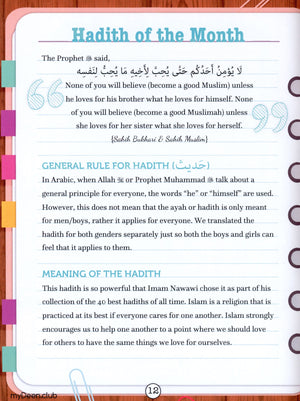 Hadith of the Month
The Prophet ﷺ said,
لَا يُؤْمِنُ أَحَدُكُم حَتَّى يُحِبَّ لِأَخِيهِ مَا يُحِبُّ لِنَفْسِه
None of you will believe (become a good Muslim) unless
he loves for his brother what he loves for himself. None
of you will believe (become a good Muslimah) unless
she loves for her sister what she loves for herself.
{Sahih Bukhari & Sahih Muslim}
GENERAL RULE FOR HADITH (حَدِيثْ)
In Arabic, when Allah ﷻ or Prophet Muhammad ﷺ talk about a
general principle for everyone, the words “he” or “himself” are used.
However, this does not mean that the ayah or hadith is only meant
for men/boys, rather it applies for everyone. We translated the
hadith for both genders separately just so both the boys and girls can
feel that it applies to them.
MEANING OF THE HADITH
This hadith is so powerful that Imam Nawawi chose it as part of his
collection of the 40 best hadiths of all time. Islam is a religion that is
practiced at its best if everyone cares for one another. Islam strongly
encourages us to help one another to a point where we should love
for others to have the same things we love for ourselves.
12
myDeen.club